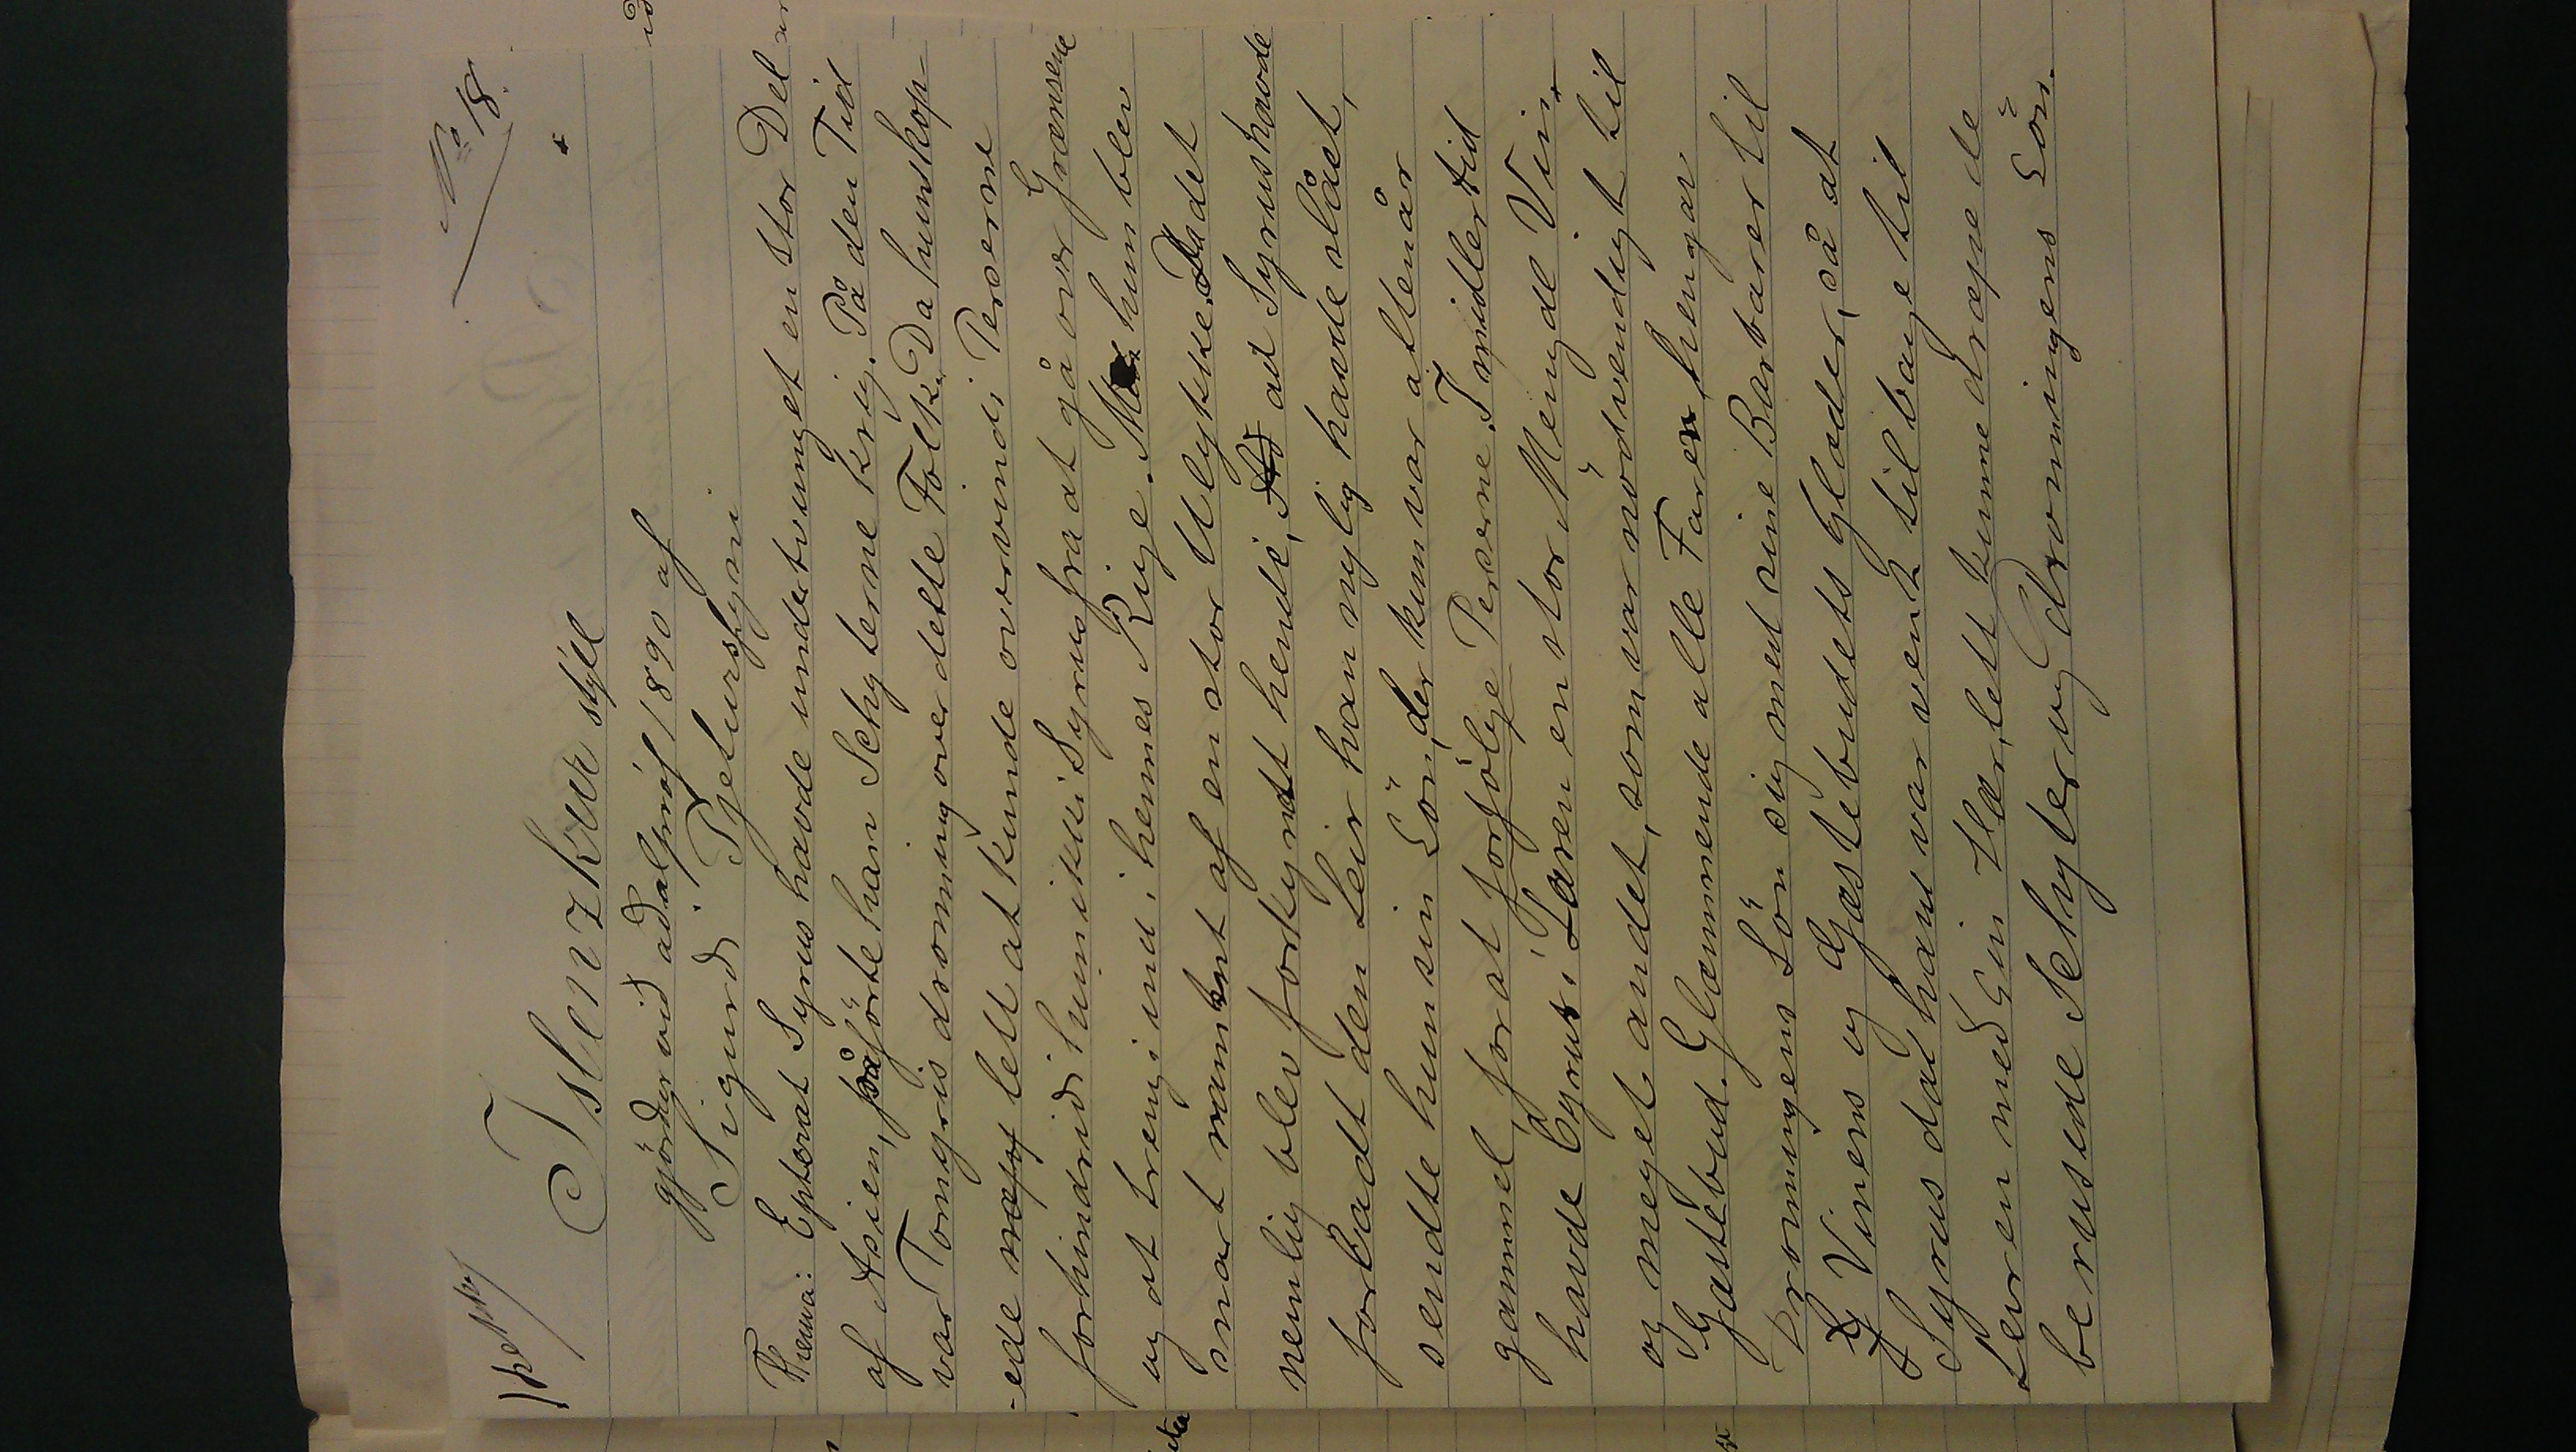 No 18.
Islenzkur stýll
gjörður við aðalpróf 1890 af
Sigurði Pjeturssyni
Thema: Epterat Syrus havde undertvunget en stor Del
af Asien, påförte han Schyterne Krig. På den Tid
var Tomyris dronning over dette Folk. Da hun skop-
-ede let at kunde overvindi Perserne
forhindriði hun ikki Syrus fra at gå over Grænsene
og at treng i ind i hennes Rige. Men hun blev
snart ramt af en stor Ulykke. Da det
nemlig blev forkynt hende, ad Syrus havde
forladt den Leir han nylig havde slået,
sendte hun sin Sön, der kun var åttenår
gammel, for at forfölge Perserne. Imidlertid
havde Cyrus i Læren en stor Mengde Vin
og meget andet, som var nödvendigt til
Gæstebud. Glæmmende alle Farer, hengav
Dronningens Sön sig med sine Barbarer til
Vinens og Gæstebudets Glæder, så at
Syrus dað hans var vent tilbage til
Leiren með Sin Hær, lett kunne dræpe de
berusede Schyter og dronningens Sön.